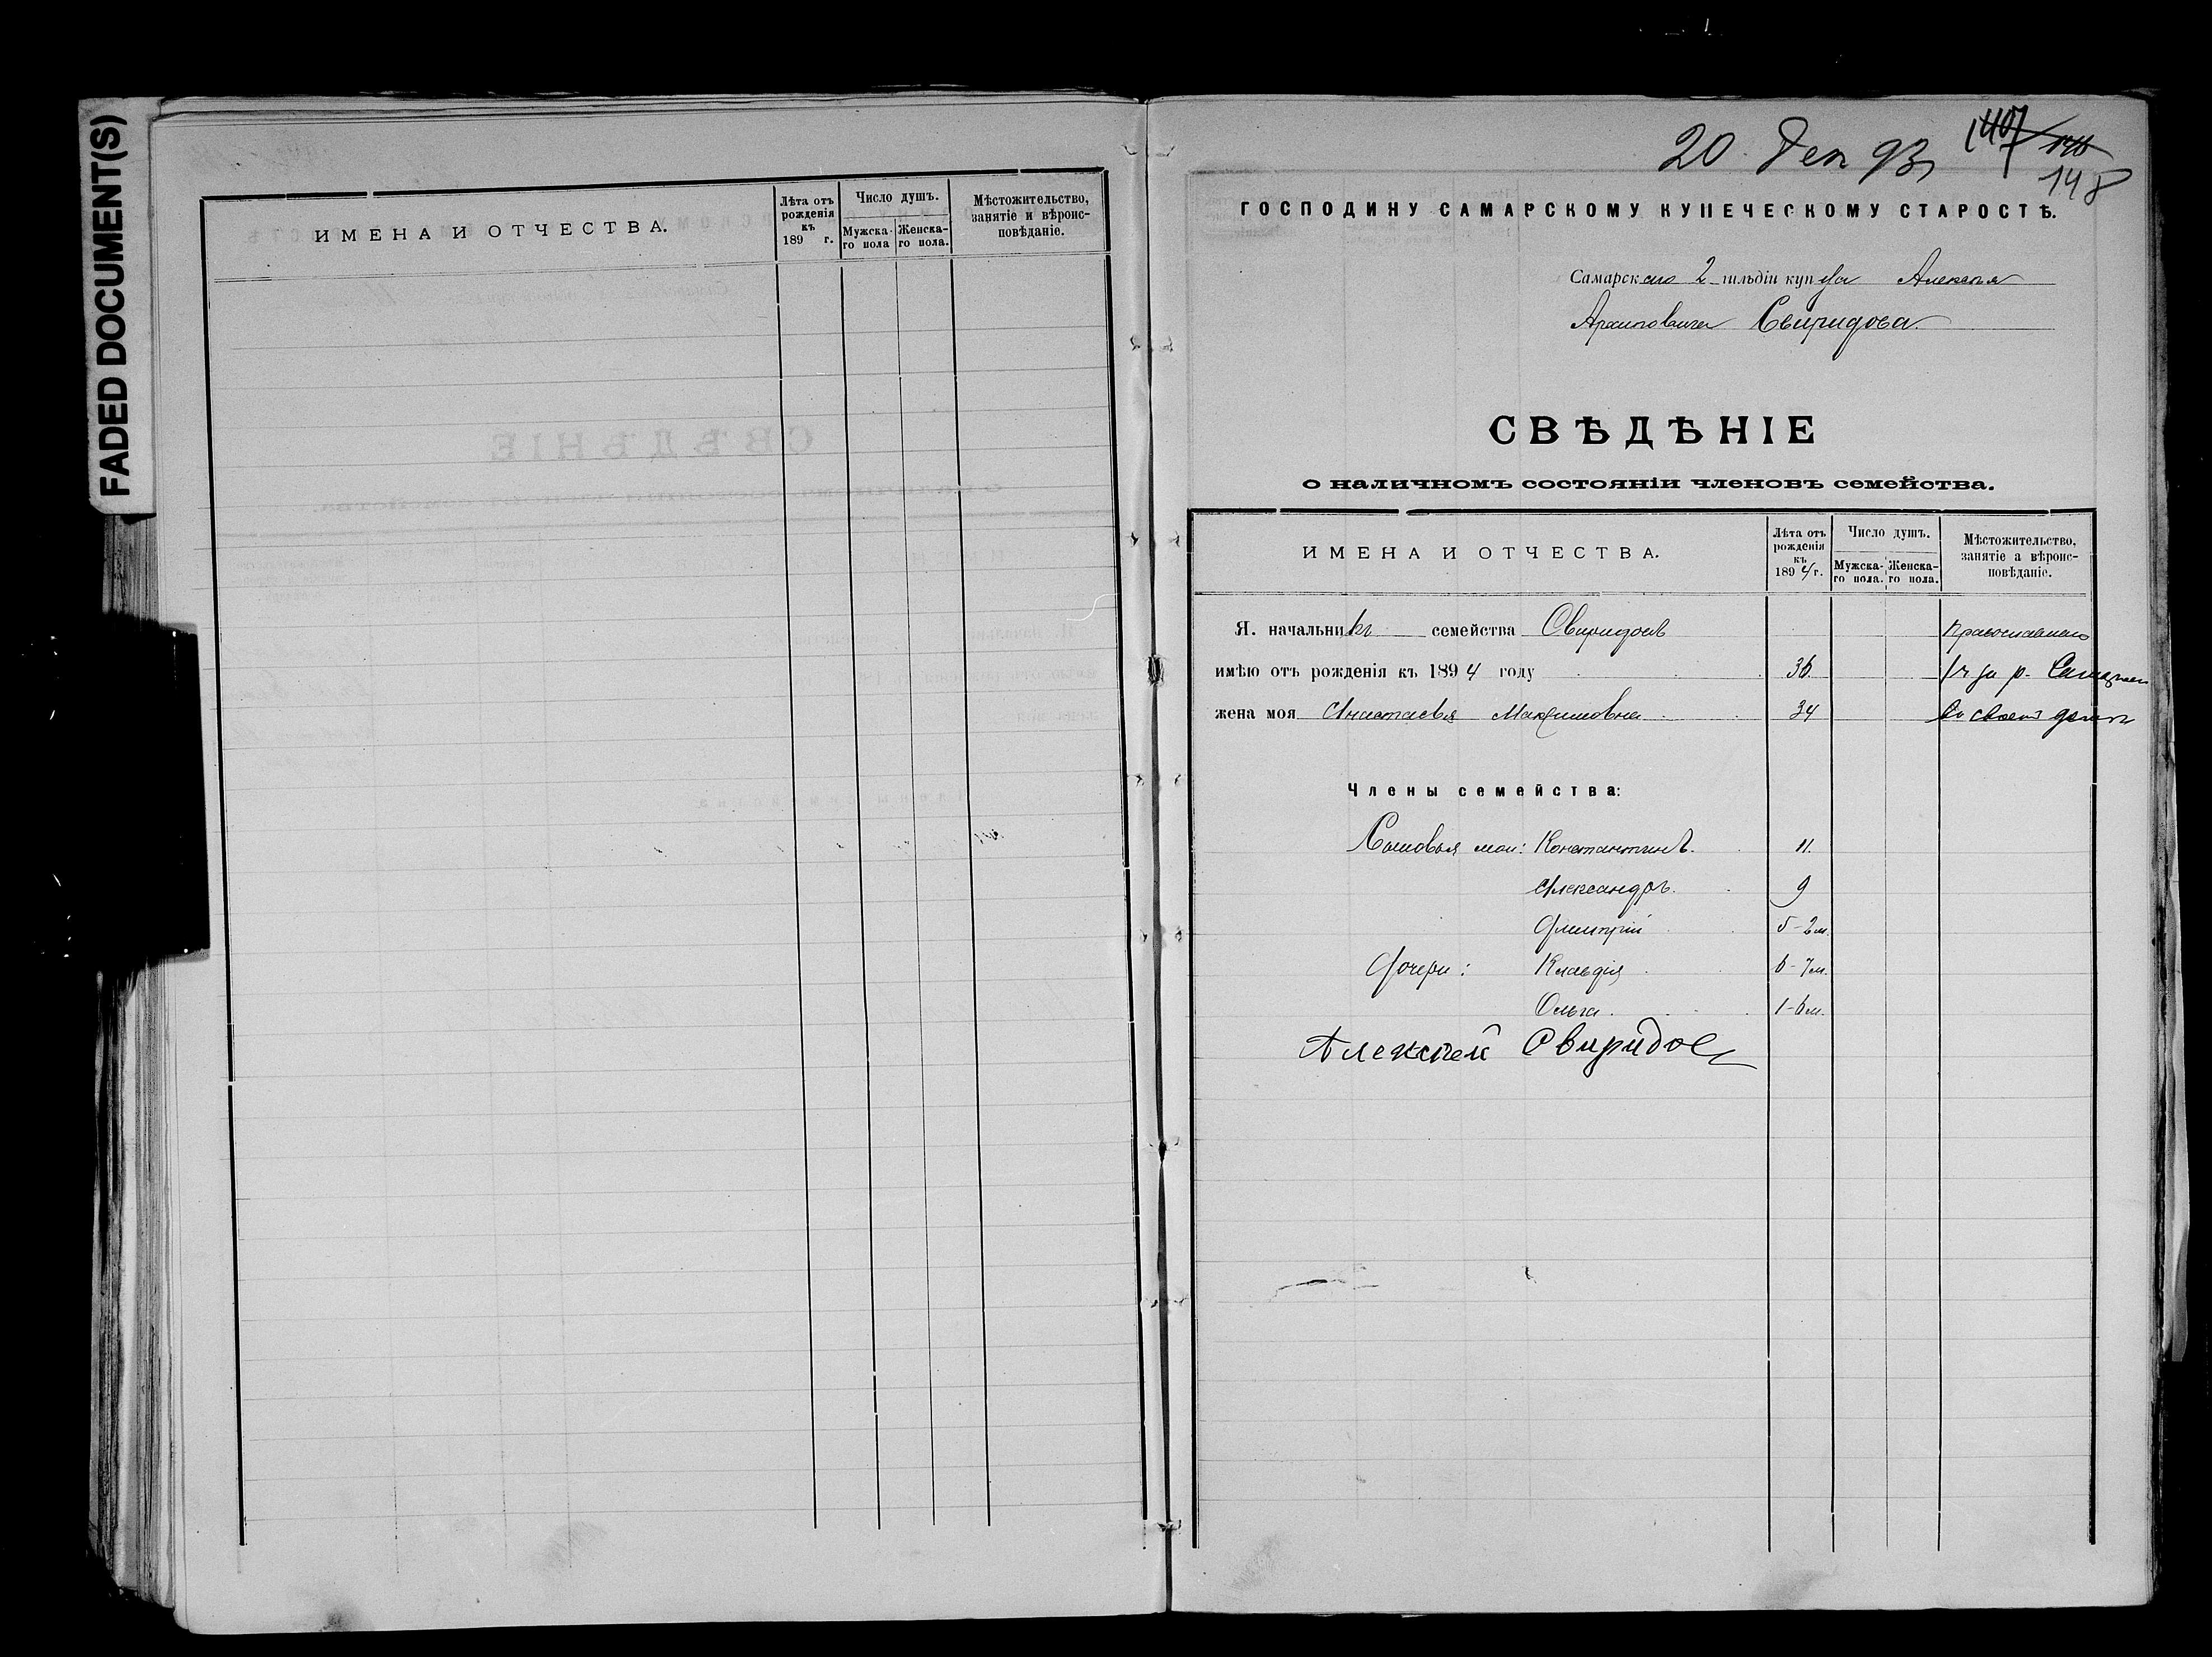 FADED DOCUMENT(S)
ИМЕНА И ОТЧЕСТВА.
Лѣта отъ рожденія къ 189 г.
Число душъ.
Мужска-го пола
Женска-го пола.
Мѣстожительство, занятіе и вѣроис-повѣданіе.
20 Дек 93
148
ГОСПОДИНУ САМАРСКОМУ КУПЕЧЕСКОМУ СТАРОСТѢ.
Самарскаго 2 гильдіи купца Алексѣя
Архиповича Свиридова
СВѢДѢНІЕ
о наличномъ состояніи членовъ семейства.
ИМЕНА И ОТЧЕСТВА.
Лѣта отъ рожденія къ 1894 г.
Число душъ.
Мужска-го пола.
Женска-го пола.
Мѣстожительство, занятіе а вѣроис-повѣданіе.
Я. начальникъ семейства Свиридовъ
имѣю отъ рожденія къ 1894 году 36 за р.
жена моя Анастасья Максимовна 34 въ своемъ домѣ
Члены семейства:
Сыновья мои: Константинъ. 11.
Александръ. 9
Дмитрій 5-2м.
Дочери: Клавдія 6-7м.
Ольга. 1-6м.
Алексѣй Свиридов